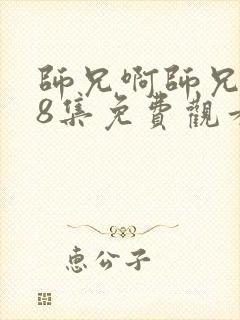 師兄啊師兄
8集免費觀
惠公子